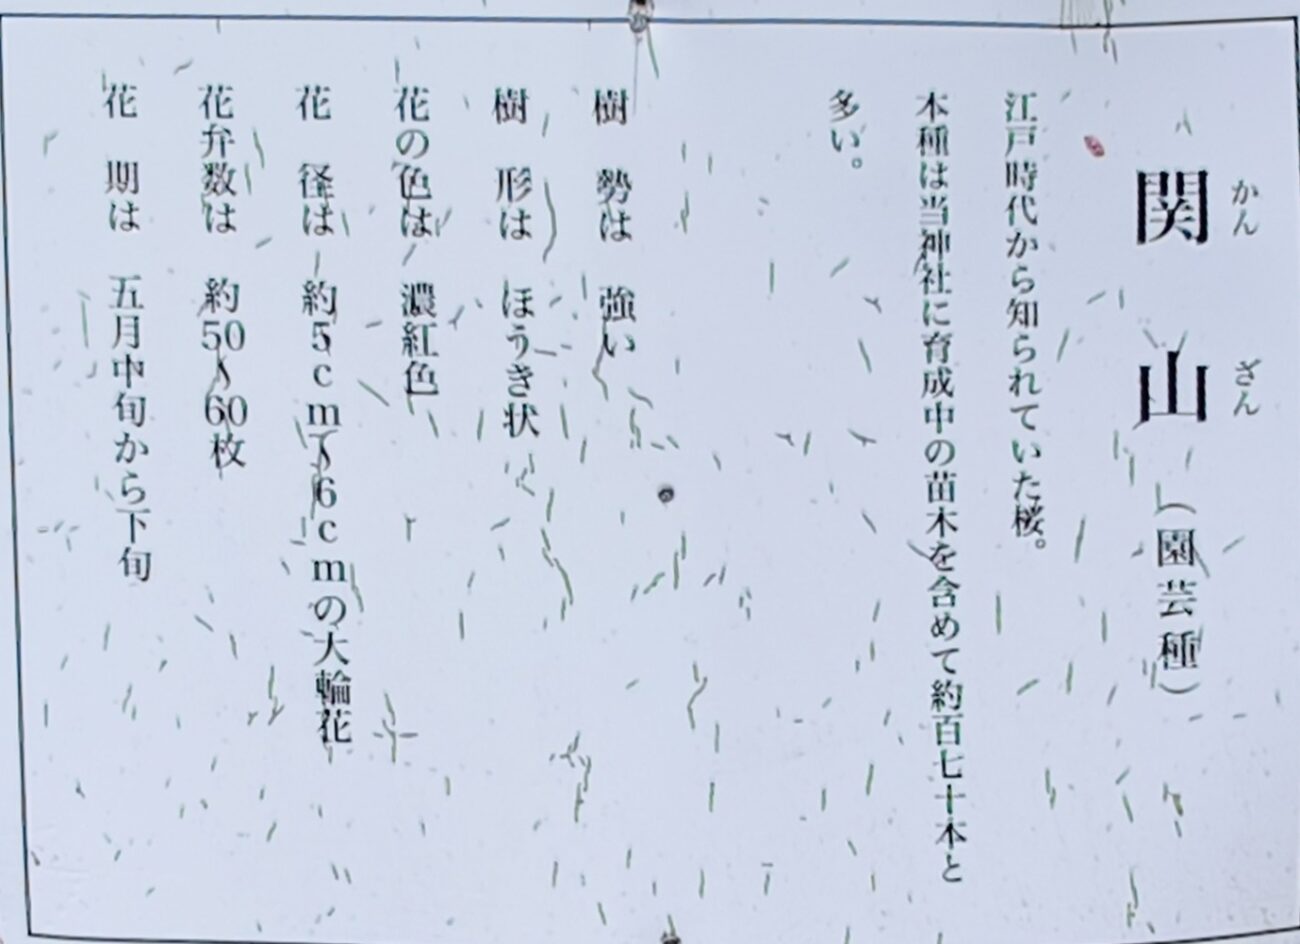 かん ざん
関山（園芸種）
江戸時代から知られていた桜。
本種は当神社に育成中の苗木を含めて約百七十本と
多い。
樹 勢は 強い
樹 形は ほうき状
花の色は 濃紅色
花 径は 約5cm〜6cmの大輪花
花弁数は 約50〜60枚
花 期は 五月中旬から下旬